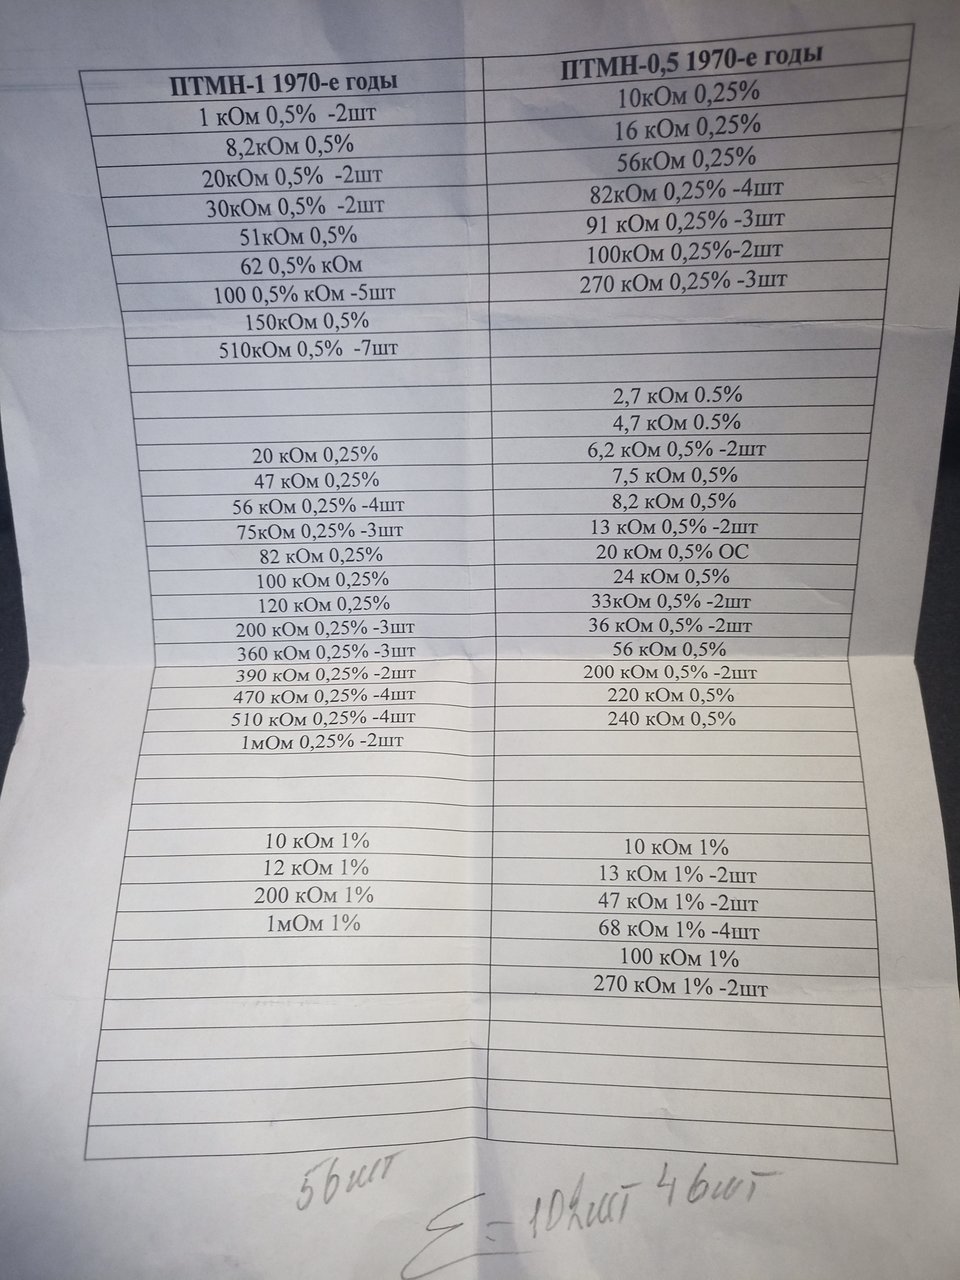 ПТМН-1 1970-е годы ПТМН-0,5 1970-е годы
1 кОм 0,5% -2шт 10кОм 0,25%
8,2кОм 0,5% 16 кОм 0,25%
20кОм 0,5% -2шт 56кОм 0,25%
30кОм 0,5% -2шт 82кОм 0,25% -4шт
51кОм 0,5% 91 кОм 0,25% -3шт
62 0,5% кОм 100кОм 0,25%-2шт
100 0,5% кОм -5шт 270 кОм 0,25% -3шт
150кОм 0,5%
510кОм 0,5% -7шт
2,7 кОм 0.5%
4,7 кОм 0.5%
20 кОм 0,25% 6,2 кОм 0,5% -2шт
47 кОм 0,25% 7,5 кОм 0,5%
56 кОм 0,25% -4шт 8,2 кОм 0,5%
75кОм 0,25% -3шт 13 кОм 0,5% -2шт
82 кОм 0,25% 20 кОм 0,5% ОС
100 кОм 0,25% 24 кОм 0,5%
120 кОм 0,25% 33кОм 0,5% -2шт
200 кОм 0,25% -3шт 36 кОм 0,5% -2шт
360 кОм 0,25% -3шт 56 кОм 0,5%
390 кОм 0,25% -2шт 200 кОм 0,5% -2шт
470 кОм 0,25% -4шт 220 кОм 0,5%
510 кОм 0,25% -4шт 240 кОм 0,5%
1мОм 0,25% -2шт
10 кОм 1% 10 кОм 1%
12 кОм 1% 13 кОм 1% -2шт
200 кОм 1% 47 кОм 1% -2шт
1мОм 1% 68 кОм 1% -4шт
100 кОм 1%
270 кОм 1% -2шт
56шт 46шт
Σ=102шт